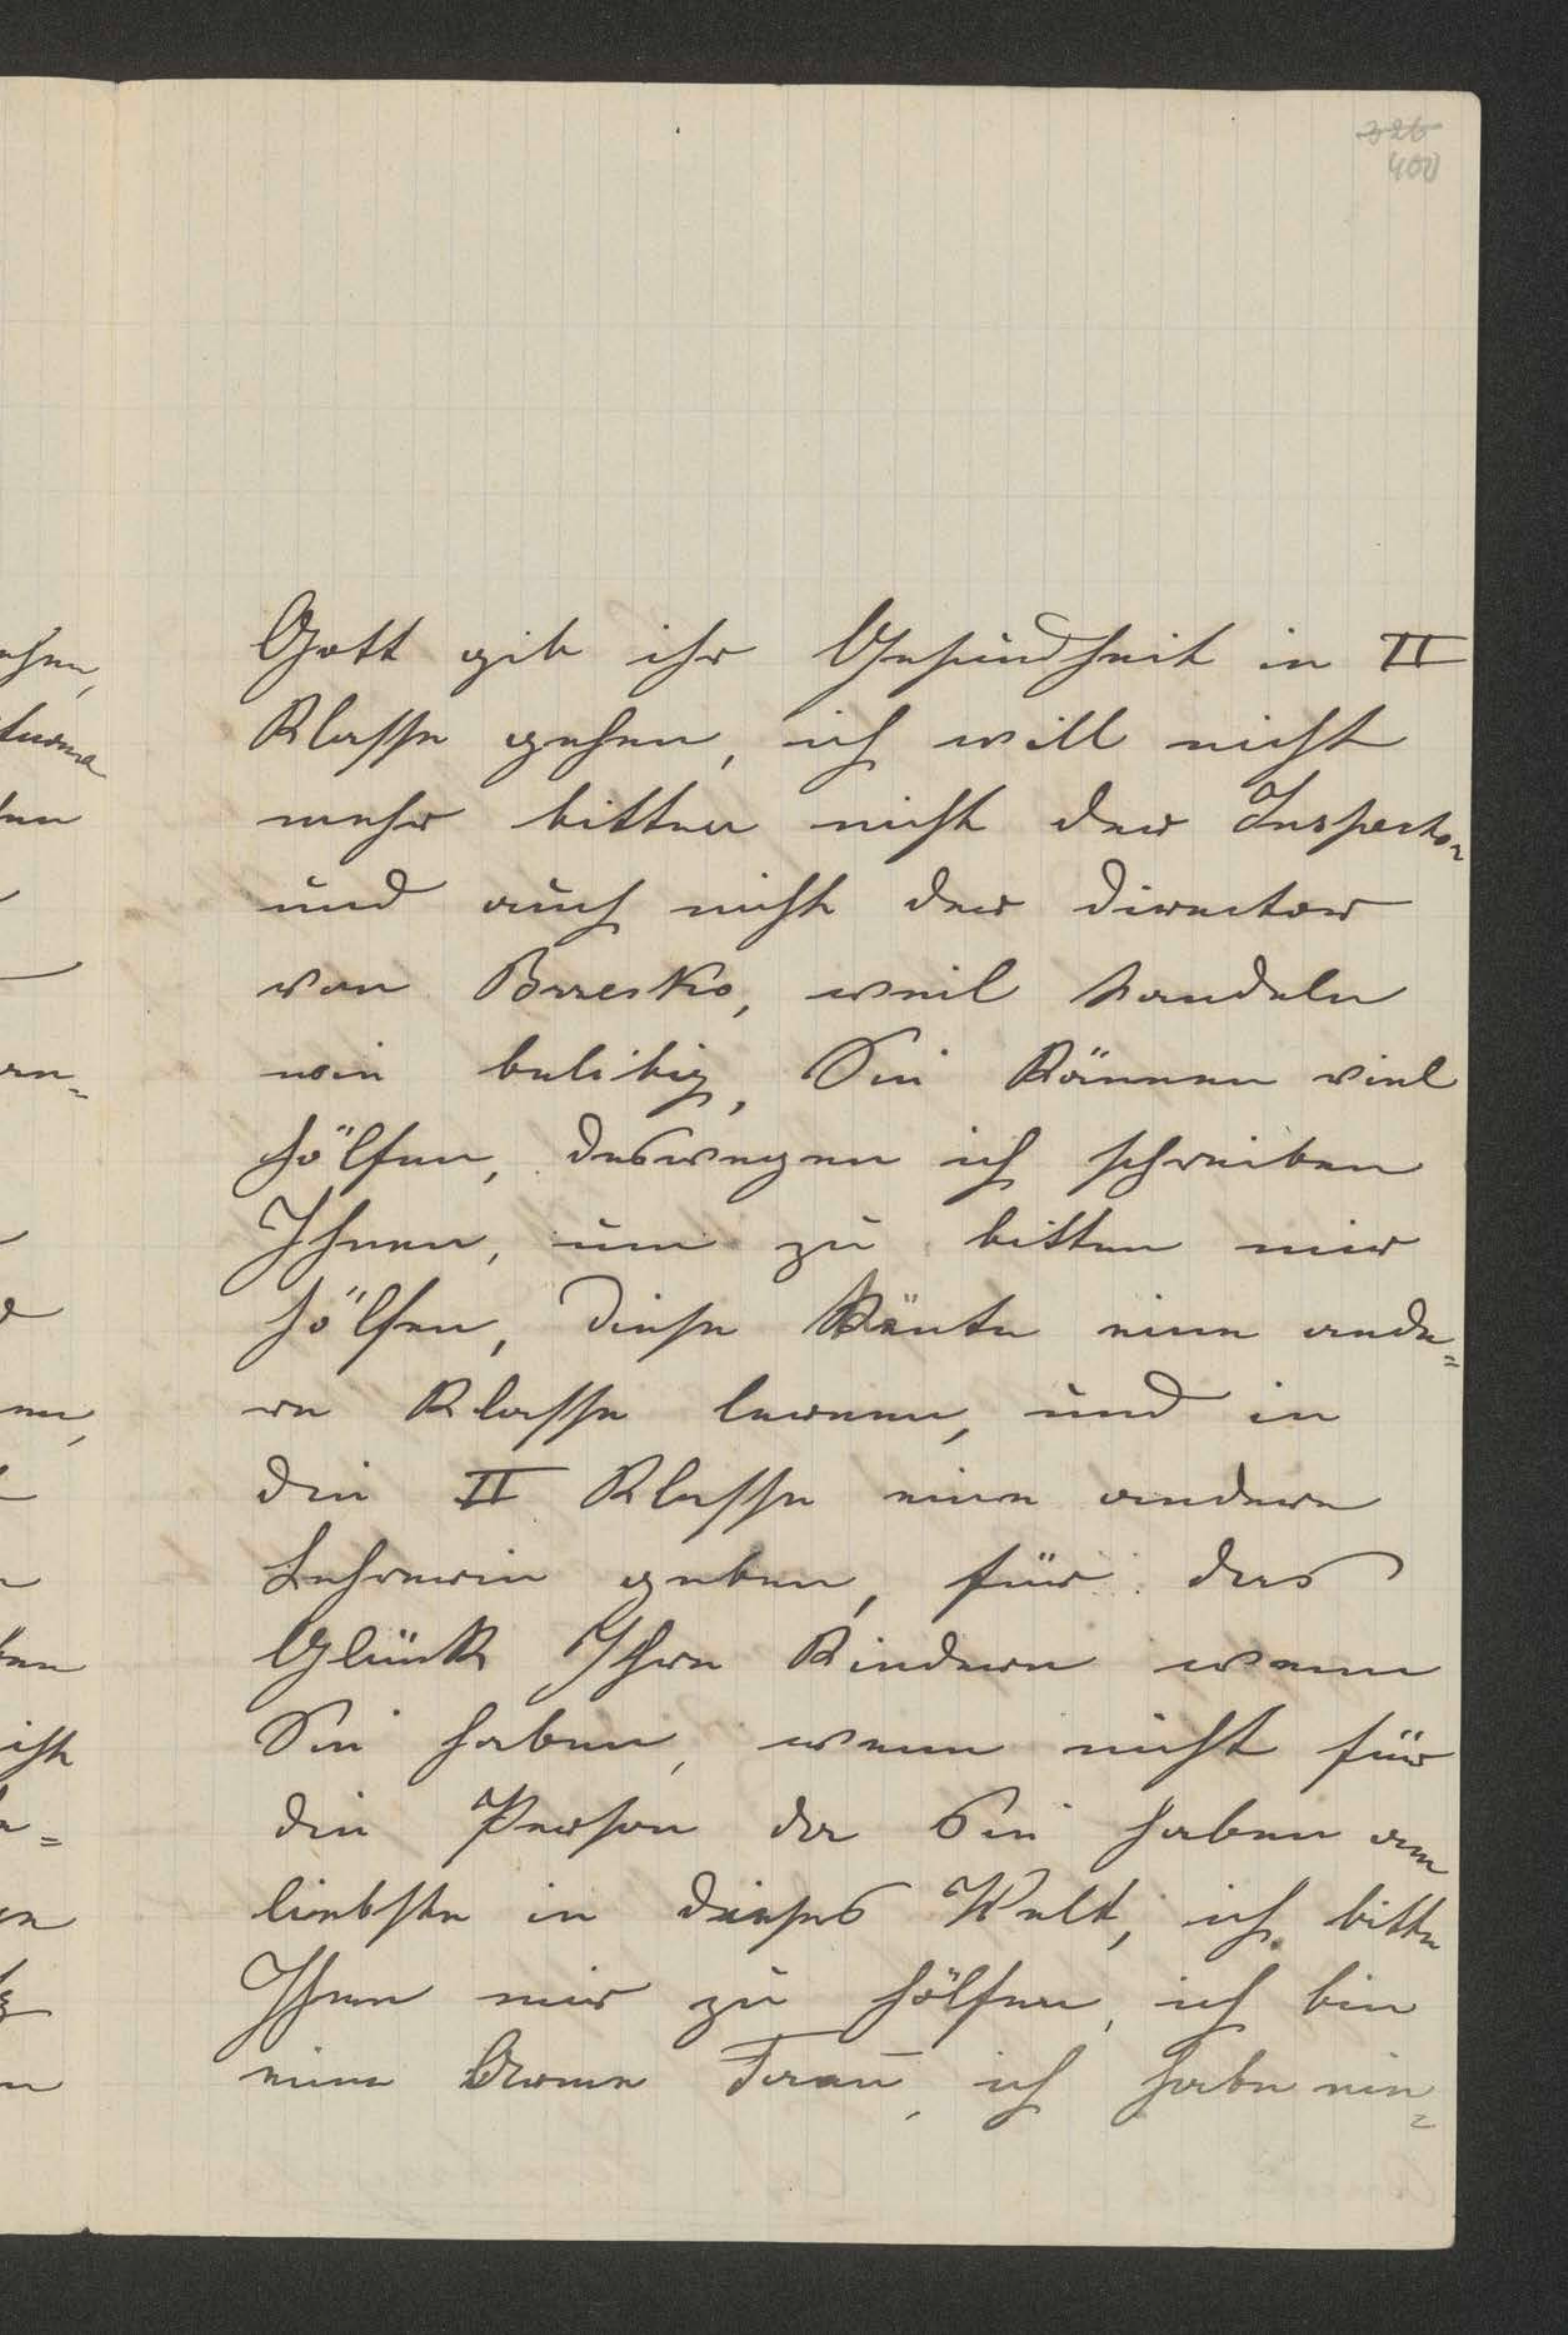 326
400
Gott gib ihr Gesundheit in II
Klasse gehen, ich will nicht
mehr bitten nicht der Inspector
und auch nicht der Director
von Brzesko, weil handeln
wie belibig, Sie können viel
hölfen, deswegen ich schreiben
Ihnen, um zu bitten mir
hölfen, diese Känte eine ande=
re Klasse lernen, und in
die II Klasse eine andere
Lehrerin geben, für das
Glück Ihre Kindern wenn
Sie haben, wenn nicht für
die Person da Sie haben am
liebste in dieses Welt, ich bitte
Ihnen mir zu hölfen, ich bin
eine Arme Frau, ich habe ein=